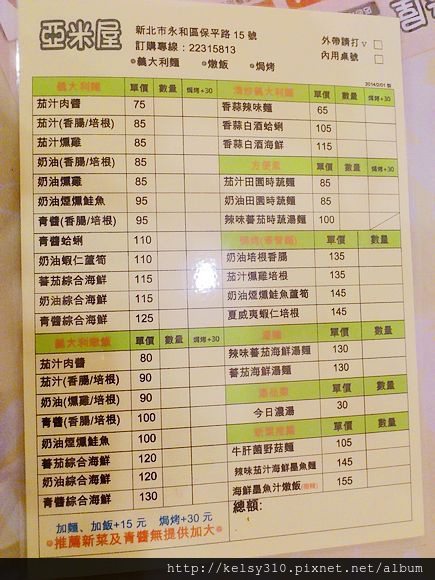 亞米屋
新北市永和區保平路15號
訂購專線：22315813
●義大利麵 ●燉飯 ●焗烤
外帶請打 v □
內用桌號 □
2014/2/01 製
義大利麵 單價 數量 焗烤+30
茄汁肉醬 75
茄汁(香腸/培根) 85
茄汁燻雞 85
奶油(香腸/培根) 85
奶油燻雞 85
奶油煙燻鮭魚 95
青醬(香腸/培根) 95
青醬蛤蜊 110
奶油蝦仁蘆筍 110
蕃茄綜合海鮮 115
奶油綜合海鮮 115
青醬綜合海鮮 125
義大利燉飯 單價 數量 焗烤+30
茄汁肉醬 80
茄汁(香腸/培根) 90
奶油(燻雞/培根) 90
青醬(香腸/培根) 100
奶油煙燻鮭魚 100
蕃茄綜合海鮮 120
奶油綜合海鮮 120
青醬綜合海鮮 130
清炒義大利麵 單價 數量 焗烤+30
香蒜辣味麵 65
香蒜白酒蛤蜊 105
香蒜白酒海鮮 115
單價 數量 焗烤+30
茄汁田園時蔬麵 85
奶油田園時蔬麵 85
辣味蕃茄時蔬湯麵 100
單價 數量
奶油培根香腸 135
茄汁燻雞培根 135
奶油煙燻鮭魚蘆筍 145
夏威夷蝦仁培根 145
湯麵 單價 數量
辣味蕃茄海鮮湯麵 130
蕃茄海鮮湯麵 130
單價 數量
今日濃湯 30
單價 數量
牛肝菌野菇麵 105
辣味茄汁海鮮墨魚麵 145
海鮮墨魚汁燉飯 155
總額:
加麵、加飯+15 元 焗烤+30 元
●推薦新菜及青醬無提供加大●
http://kelsy310.pixnet.net/album